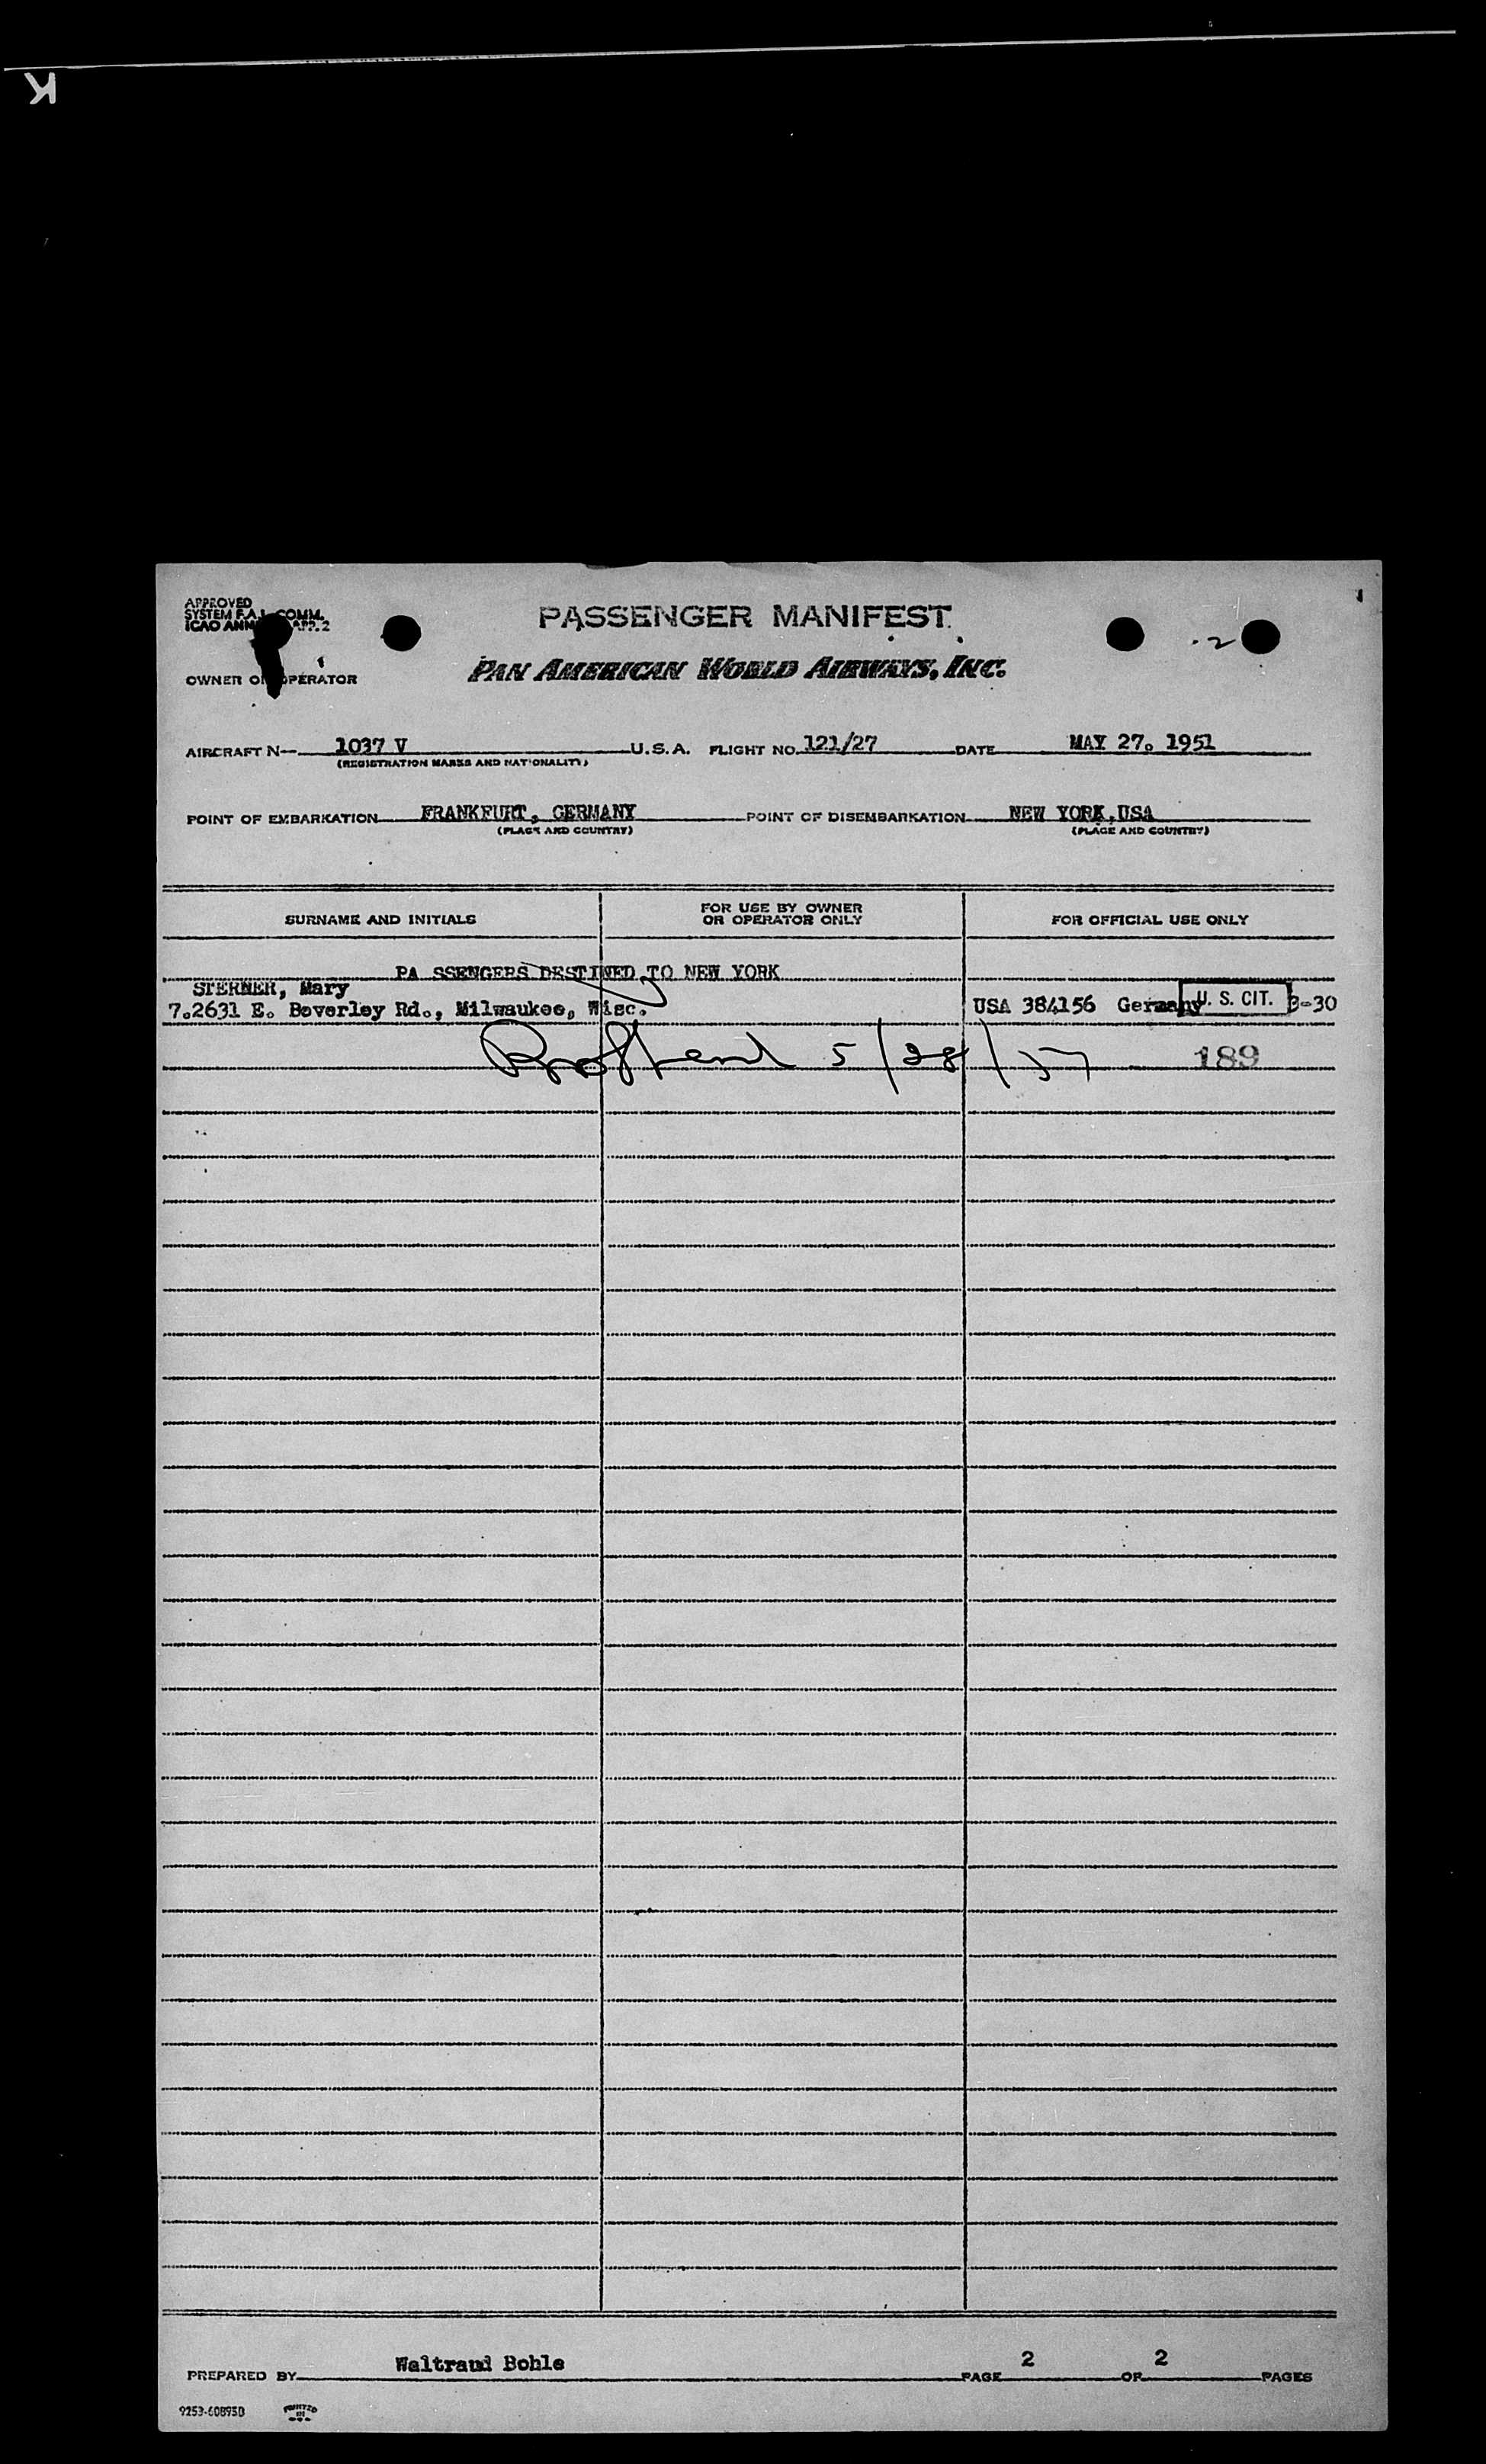 K
APPROVED
SYSTEM F.A.L. COMM.
ICAO ANN APP. 2
PASSENGER MANIFEST
2
OWNER OR OPERATOR
PAN AMERICAN WORLD AIRWAYS, INC.
AIRCRAFT N— 1037 V U.S.A. FLIGHT NO. 121/27 DATE MAY 27. 1951
(REGISTRATION MARKS AND NATIONALITY)
POINT OF EMBARKATION FRANKFURT, GERMANY POINT OF DISEMBARKATION NEW YORK,USA
(PLACE AND COUNTRY) (PLACE AND COUNTRY)
SURNAME AND INITIALS FOR USE BY OWNER OR OPERATOR ONLY FOR OFFICIAL USE ONLY
PA SSENGERS DESTINED TO NEW YORK
STERNER, Mary
7.2631 E. Beverley Rd., Milwaukee, Wisc. USA 384156 Germany U. S. CIT. 3-30
5/28/51 189
PREPARED BY Waltraud Bohle PAGE 2 OF 2 PAGES
9253-60895B PRINTED IN